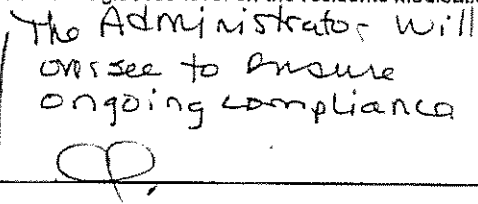 The Administrator will
oversee to ensure
ongoing compliance